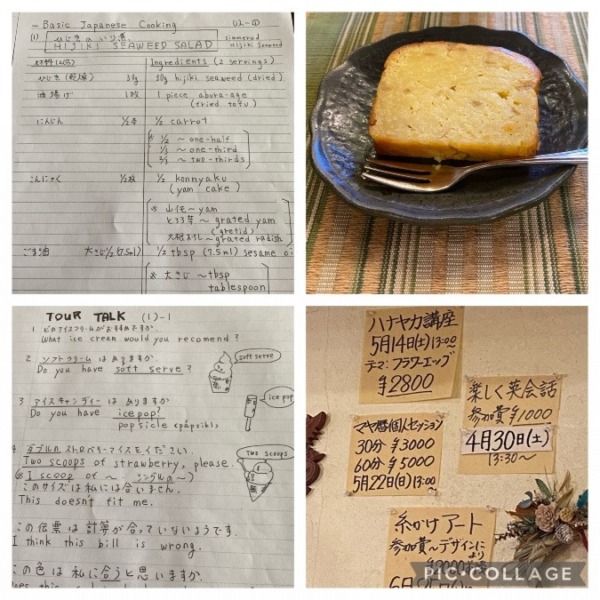 - Basic Japanese Cooking
(1) ひじきのいり煮 simmered
HIJIKI SEAWEED SALAD Hijiki Seaweed
Ingredients (2 servings)
ひじき (乾燥) 30g 30g hijiki seaweed (dried)
油揚げ 1枚 1 piece abura-age
(fried tofu)
にんじん 1/2本 1/2 carrot
※ 1/2 ~ one-half
1/3 ~ one-third
2/3 ~ two-thirds
こんにゃく 1/2枚 1/2 konnyaku
(yam cake)
※ 山芋 ~ yam
とろろ芋 ~ grated yam
(gretid)
大根おろし ~ grated radish
ごま油 大さじ1/2 (7.5ml) 1/2 tbsp (7.5ml) sesame oi
※ 大さじ ~ tbsp
tablespoon
TOUR TALK (1)-1
1 どのアイスクリームがおすすめですか
What ice cream would you recomend?
2 ソフトクリームはありますか
Do you have soft serve?
soft serve
3 アイスキャンディーはありますか
Do you have ice pop?
popsicle
ice pop
4 ダブルのストロベリーアイスをください
Two scoops of strawberry, please.
two scoops
1 scoop of ~ シングルの~
このサイズは私には合いません。
This doesn't fit me.
この伝票は計算が合っていないようです。
I think this bill is wrong.
この色は私に合うと思いますか
ハナヤカ講座
5月14日(土)13:00~
テーマ:フラワーエッグ
¥2800
楽しく英会話
参加賞¥1000
4月30日(土)
13:30~
マヤ暦個人セッション
30分 ¥3000
60分 ¥5000
5月22日(日)13:00~
糸かけアート
参加賞~デザインに
より
PIC·COLLAGE